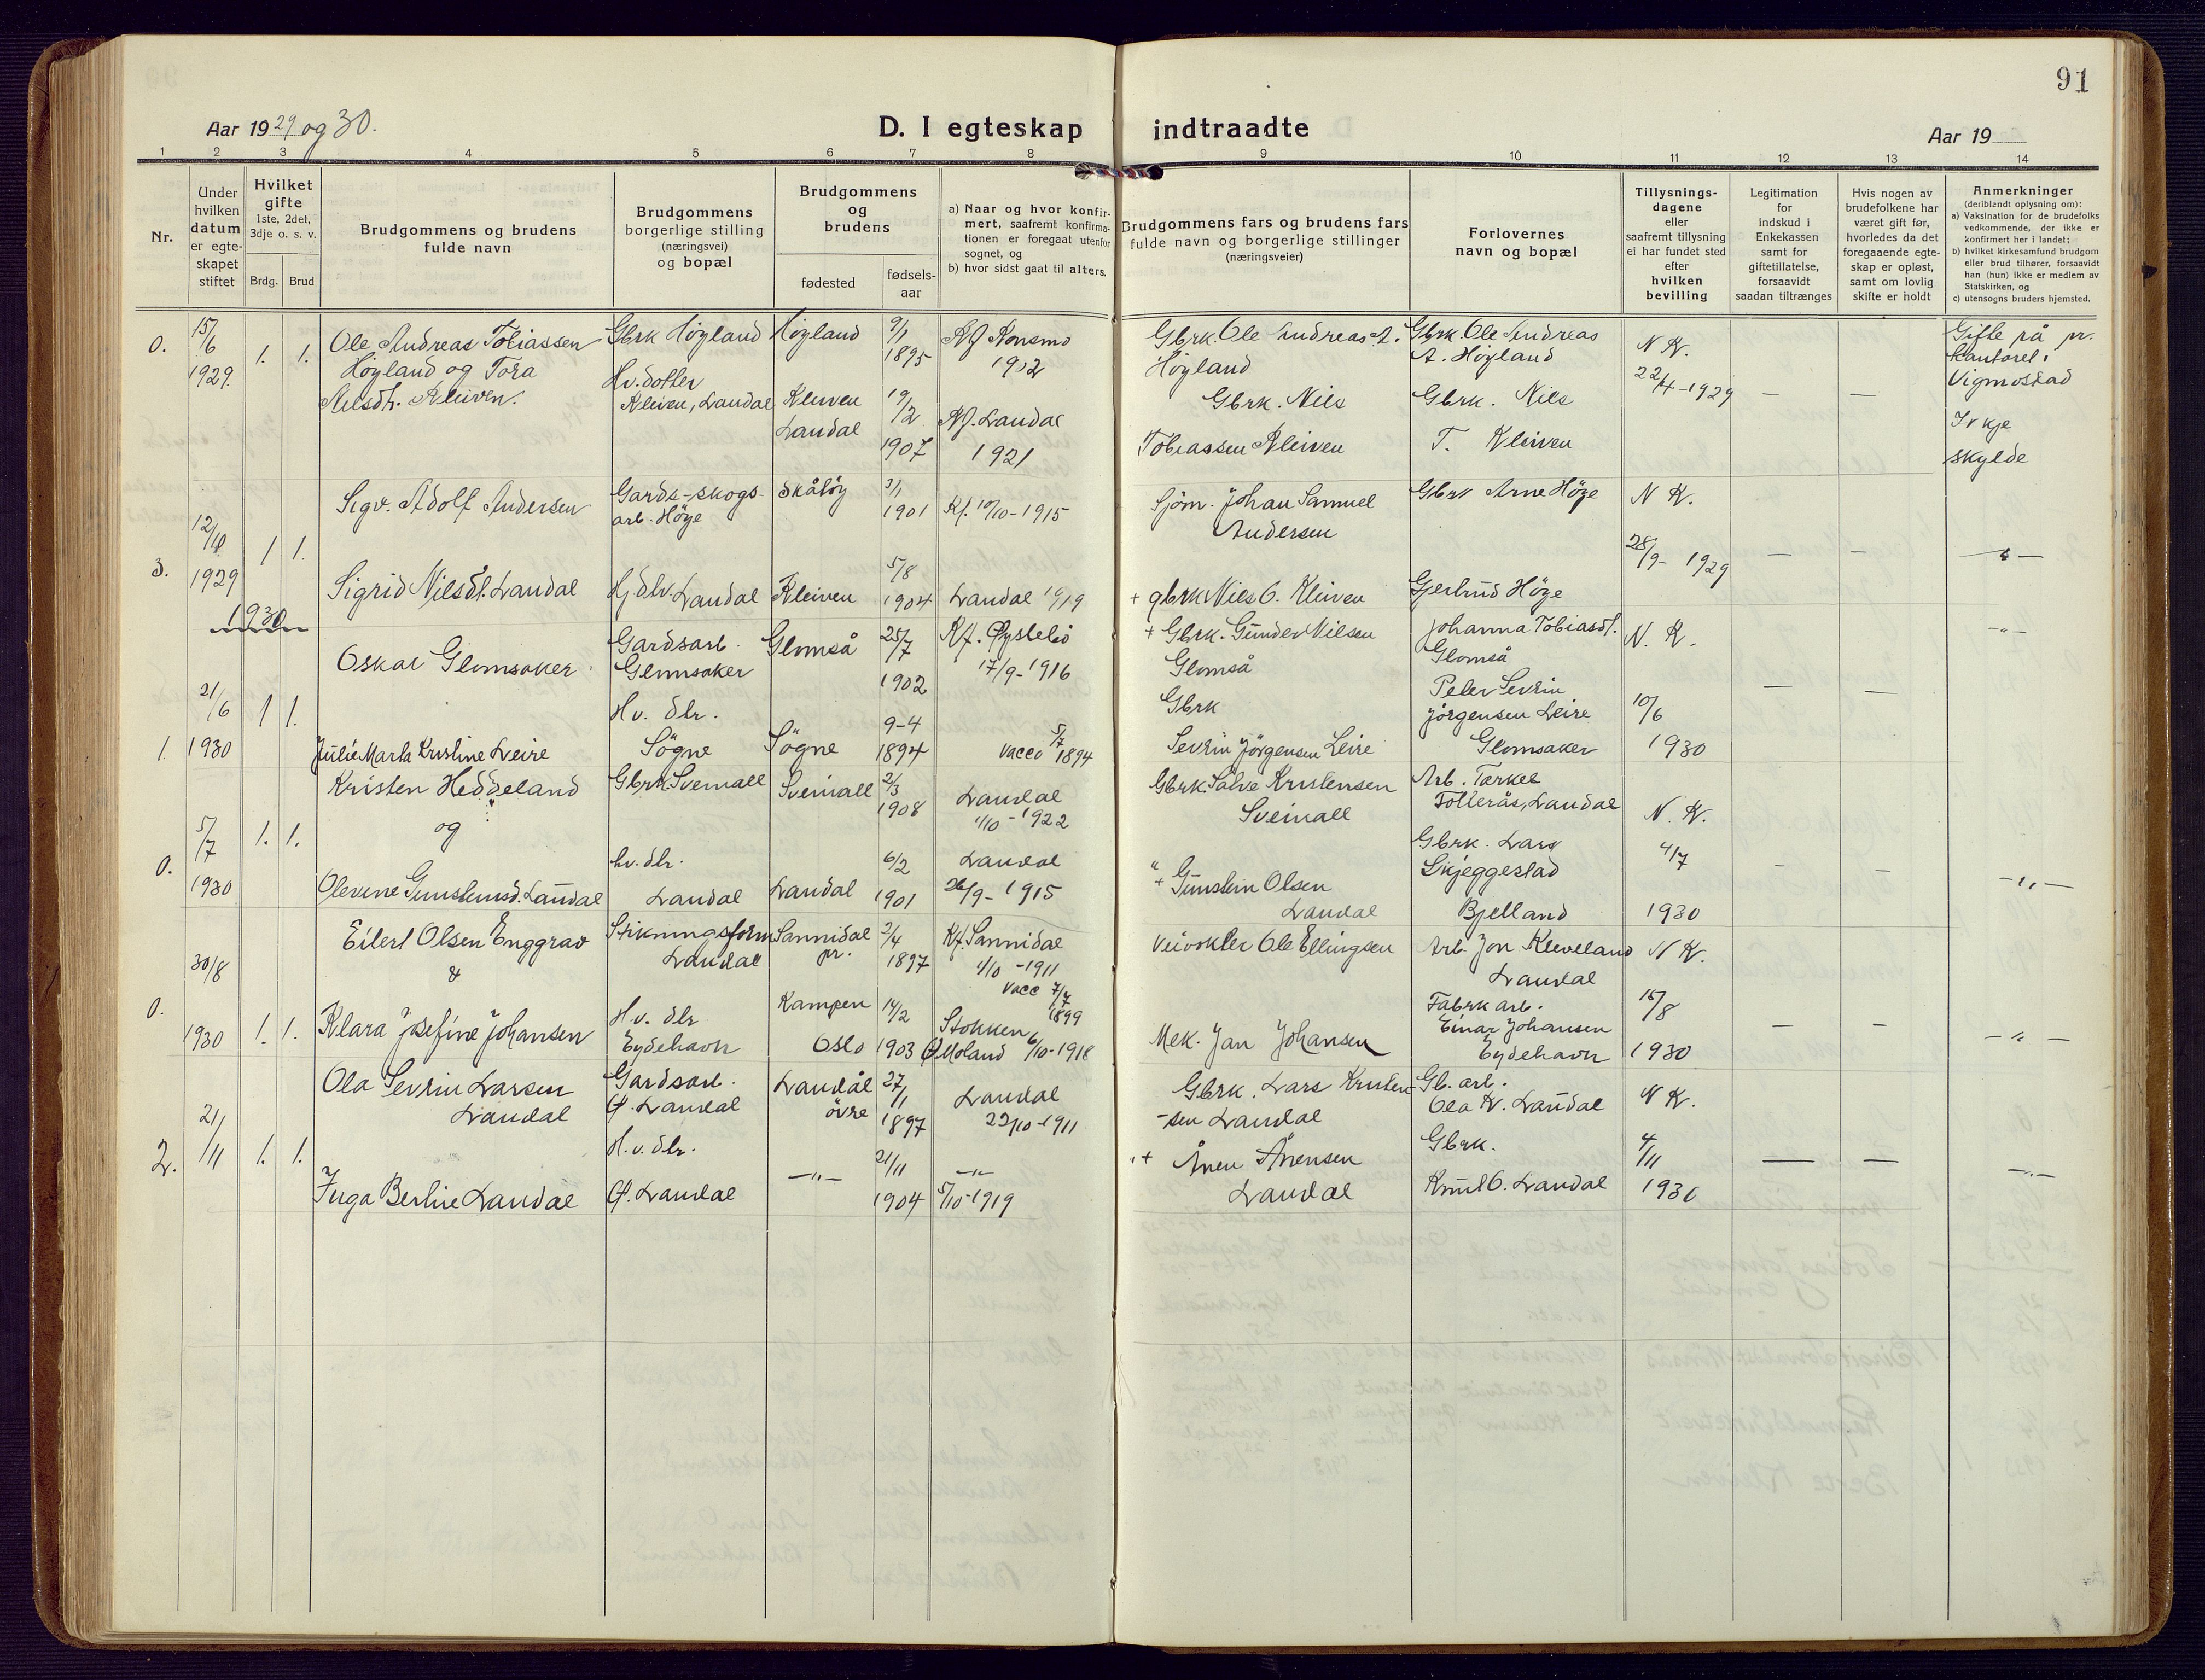 91
Aar 1929 og 30.
D. I egteskap indtraadte
Aar 19
1 2 3 4 5 6 7 8 9 10 11 12 13 14
Nr.
Under hvilken datum er egte- skapet stiftet
Hvilket gifte
1ste, 2det, 3dje o. s. v.
Brdg. Brud
Brudgommens og brudens fulde navn
Brudgommens borgerlige stilling (næringsvei) og bopæl
Brudgommens og brudens
fødested
fødsels- aar
a) Naar og hvor konfir-
mert, saafremt konfirma-
tionen er foregaat utenfor
sognet, og
b) hvor sidst gaat til alters.
Brudgommens fars og brudens fars
fulde navn og borgerlige stillinger
(næringsveier)
Forlovernes
navn og bopæl
Tillysnings-
dagene
eller
saafremt tillysning
ei har fundet sted
efter
hvilken
bevilling
Legitimation
for
indskud i
Enkekassen
samt for
giftetillatelse,
forsaavidt
saadan tiltrænges
Hvis nogen av
brudefolkene har
været gift før,
hvorledes da det
foregaaende egte-
skap er opløst,
samt om lovlig
skifte er holdt
Anmerkninger
(deriblandt oplysning om):
a) Vaksination for de brudefolks
vedkommende, der ikke er
konfirmert her i landet;
b) hvilket kirkesamfund brudgom
eller brud tilhører, forsaavidt
han (hun) ikke er medlem av
Statskirken, og
c) utensogns bruders hjemsted.
0. 15/6 1929. 1. 1.
Ole Andreas Tobiassen
Høyland og Tora
Nilsdtr. Kleiven.
Gbrk Høyland
Hv. dotter
Kleiven, Laudal
Høyland
Kleiven
Laudal
9/1
1895
19/2
1907
Kf Konsmo
1912
Kf. Laudal
1921
Gbrk. Ole Andreas A.
Høyland
Gbrk. Nils
Tobiassen Kleiven
Gbrk. Ole Andreas
A. Høyland
Gbrk. Nils
T. Kleiven
N K.
22/4-1929
— —
Gifte på pr.
kantoret i
Vigmostad
Ivkje
skylde
3. 12/10 1929 1 1.
Sigv. Adolf Andersen
Sigrid Nilsdt. Laudal
Gards-skogs-
arb. Höye
Hj. dtr. Laudal
Skålöy
Kleiven
2/1
1901
5/8
1904
Kf. 10/10-1915
Laudal 1919
Sjöm. Johan Samuel
Andersen
+ gbrk Niels O. Kleiven
Gbrk Arne Höye
Gjertrud Höye
N K.
28/9- 1929
— —
-"-
1930
1. 21/6 1930 1 1.
Oskar Glomsaker
Julie Marta Kristine Leire
Gardsarb.
Glomsaker
Hv. dtr.
Søgne
Glomså
Søgne
25/7
1902
9-4
1894
Kf. Øyslebö
17/9-1916
vacc 5/7 1894
+ Gbrk. Gunder Nilsen
Glomså
Gbrk
Sevrin Jørgensen Leire
Johanna Tobiasdt.
Glomså
Peter Sevrin
Jørgensen Leire
Glomsaker
N. K.
10/6
1930
— —
-"-
0. 5/7 1930 1. 1.
Kristen Heddeland
og
Olevine Gunsteinsd. Laudal
Gbrk. Sveinall
hv. dtr.
Laudal
Sveinall
Laudal
2/3
1908
6/2
1901
Laudal
1/10-1922
Laudal
26/9-1915
Gbrk. Salve Kristensen
Sveinall
"
+ Gunstein Olsen
Laudal
Arb. Tarkel
Tofterås, Laudal
Gbrk. Lars
Skjeggestad
Bjelland
N. K.
4/7
1930
- -
-"-
0. 30/8 1930 1. 1.
Eilert Olsen Enggrav
&
Klara Josefine Johansen
Stikningsform
Laudal
H.v. dtr
Eydehavn
Sannidal
pr.
Kampen
Oslo
2/4
1897
14/2
1903
Kf. Sannidal
1/10-1911
vacc 7/7 1899
Stokken
Ø Moland 6/10-1918
Veivokter Ole Ellingsen
Mek. Jan Johansen
Arb. Jon Kleveland
Laudal
Fabrk arb.
Einar Johansen
Eydehavn
N K.
15/8
1930
— -
-"-
2. 21/11 1. 1.
Ola Sevrin Larsen
Laudal
Inga Bertine Laudal
Gardsarb.
Ø. Laudal
H.v. dtr.
Ø. Laudal
Laudal
övre
-"-
27/1
1897
21/11
1904
Laudal
22/10-1911
-"-
5/10-1919
Gbrk. Lars Kristen-
-sen Laudal
"+ Ånen Ånensen
Laudal
Gb. arb.
Ola K. Laudal
Gbrk.
Knut O. Laudal
N K.
4/11
1930
— —
-"-